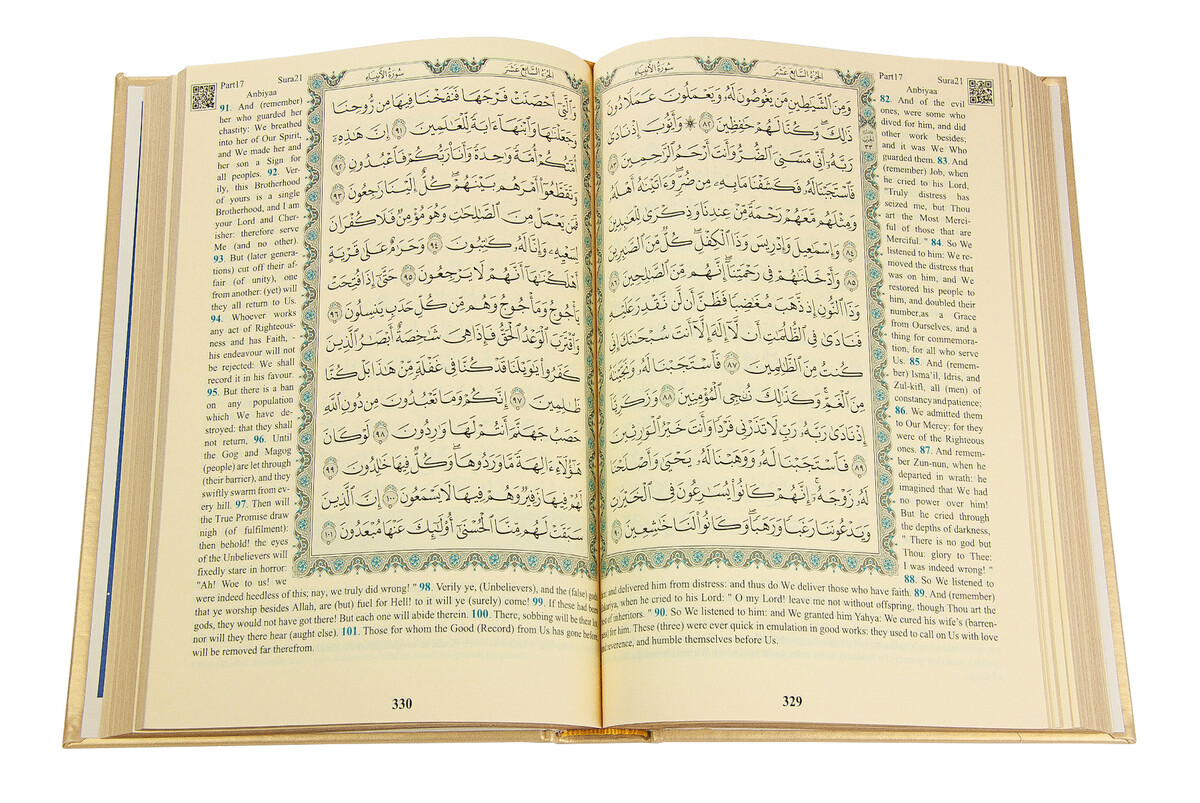 الجزء السابع عشر
سورة الأنبياء
وَمِنَ ٱلشَّيَٰطِينِ مَن يَغُوصُونَ لَهُۥ وَيَعْمَلُونَ عَمَلًا دُونَ
ذَٰلِكَ ۖ وَكُنَّا لَهُمْ حَٰفِظِينَ ٨٢ ۞ وَأَيُّوبَ إِذْ نَادَىٰ
رَبَّهُۥٓ أَنِّى مَسَّنِىَ ٱلضُّرُّ وَأَنتَ أَرْحَمُ ٱلرَّٰحِمِينَ ٨٣
فَٱسْتَجَبْنَا لَهُۥ فَكَشَفْنَا مَا بِهِۦ مِن ضُرٍّ ۖ وَءَاتَيْنَٰهُ أَهْلَهُۥ
وَمِثْلَهُم مَّعَهُمْ رَحْمَةً مِّنْ عِندِنَا وَذِكْرَىٰ لِلْعَٰبِدِينَ
٨٤ وَإِسْمَٰعِيلَ وَإِدْرِيسَ وَذَا ٱلْكِفْلِ ۖ كُلٌّ مِّنَ ٱلصَّٰبِرِينَ
٨٥ وَأَدْخَلْنَٰهُمْ فِى رَحْمَتِنَآ ۖ إِنَّهُم مِّنَ ٱلصَّٰلِحِينَ ٨٦
وَذَا ٱلنُّونِ إِذ ذَّهَبَ مُغَٰضِبًا فَظَنَّ أَن لَّن نَّقْدِرَ عَلَيْهِ
فَنَادَىٰ فِى ٱلظُّلُمَٰتِ أَن لَّآ إِلَٰهَ إِلَّآ أَنتَ سُبْحَٰنَكَ إِنِّى
كُنتُ مِنَ ٱلظَّٰلِمِينَ ٨٧ فَٱسْتَجَبْنَا لَهُۥ وَنَجَّيْنَٰهُ
مِنَ ٱلْغَمِّ ۚ وَكَذَٰلِكَ نُـۨجِى ٱلْمُؤْمِنِينَ ٨٨ وَزَكَرِيَّآ
إِذْ نَادَىٰ رَبَّهُۥ رَبِّ لَا تَذَرْنِى فَرْدًا وَأَنتَ خَيْرُ ٱلْوَٰرِثِينَ
٨٩ فَٱسْتَجَبْنَا لَهُۥ وَوَهَبْنَا لَهُۥ يَحْيَىٰ وَأَصْلَحْنَا
لَهُۥ زَوْجَهُۥٓ ۚ إِنَّهُمْ كَانُوا۟ يُسَٰرِعُونَ فِى ٱلْخَيْرَٰتِ
وَيَدْعُونَنَا رَغَبًا وَرَهَبًا ۖ وَكَانُوا۟ لَنَا خَٰشِعِينَ ٩٠
Part17 Sura21
Anbiyaa
82. And of the evil
ones, were some who
dived for him, and did
other work besides;
and it was We Who
guarded them. 83. And
(remember) Job, when
he cried to his Lord,
"Truly distress has
seized me, but Thou
art the Most Merci-
ful of those that are
Merciful. " 84. So We
listened to him: We re-
moved the distress that
was on him, and We
restored his people to
him, and doubled their
number,as a Grace
from Ourselves, and a
thing for commemora-
tion, for all who serve
Us. 85. And (remem-
ber) Isma'il, Idris, and
Zul-kifl, all (men) of
constancy and patience;
86. We admitted them
to Our Mercy: for they
were of the Righteous
ones. 87. And remem-
ber Zun-nun, when he
departed in wrath: he
imagined that We had
no power over him!
But he cried through
the depths of darkness,
" There is no god but
Thou: glory to Thee:
I was indeed wrong! "
88. So We listened to
and delivered him from distress: and thus do We deliver those who have faith. 89. And (remember)
when he cried to his Lord: " O my Lord! leave me not without offspring, though Thou art the
of inheritors. " 90. So We listened to him: and We granted him Yahya: We cured his wife's (barren-
for him. These (three) were ever quick in emulation in good works: they used to call on Us with love
reverence, and humble themselves before Us.
329
الجزء السابع عشر
سورة الأنبياء
وَٱلَّتِىٓ أَحْصَنَتْ فَرْجَهَا فَنَفَخْنَا فِيهَا مِن رُّوحِنَا
وَجَعَلْنَٰهَا وَٱبْنَهَآ ءَايَةً لِّلْعَٰلَمِينَ ٩١ إِنَّ هَٰذِهِۦٓ
أُمَّتُكُمْ أُمَّةً وَٰحِدَةً وَأَنَا۠ رَبُّكُمْ فَٱعْبُدُونِ ٩٢
وَتَقَطَّعُوٓا۟ أَمْرَهُم بَيْنَهُمْ ۖ كُلٌّ إِلَيْنَا رَٰجِعُونَ ٩٣
فَمَن يَعْمَلْ مِنَ ٱلصَّٰلِحَٰتِ وَهُوَ مُؤْمِنٌ فَلَا كُفْرَانَ
لِسَعْيِهِۦ وَإِنَّا لَهُۥ كَٰتِبُونَ ٩٤ وَحَرَٰمٌ عَلَىٰ قَرْيَةٍ
أَهْلَكْنَٰهَآ أَنَّهُمْ لَا يَرْجِعُونَ ٩٥ حَتَّىٰٓ إِذَا فُتِحَتْ
يَأْجُوجُ وَمَأْجُوجُ وَهُم مِّن كُلِّ حَدَبٍ يَنسِلُونَ ٩٦
وَٱقْتَرَبَ ٱلْوَعْدُ ٱلْحَقُّ فَإِذَا هِىَ شَٰخِصَةٌ أَبْصَٰرُ ٱلَّذِينَ
كَفَرُوا۟ يَٰوَيْلَنَا قَدْ كُنَّا فِى غَفْلَةٍ مِّنْ هَٰذَا بَلْ كُنَّا
ظَٰلِمِينَ ٩٧ إِنَّكُمْ وَمَا تَعْبُدُونَ مِن دُونِ ٱللَّهِ
حَصَبُ جَهَنَّمَ أَنتُمْ لَهَا وَٰرِدُونَ ٩٨ لَوْ كَانَ
هَٰٓؤُلَآءِ ءَالِهَةً مَّا وَرَدُوهَا ۖ وَكُلٌّ فِيهَا خَٰلِدُونَ ٩٩
لَهُمْ فِيهَا زَفِيرٌ وَهُمْ فِيهَا لَا يَسْمَعُونَ ١٠٠ إِنَّ ٱلَّذِينَ
سَبَقَتْ لَهُم مِّنَّا ٱلْحُسْنَىٰٓ أُو۟لَٰٓئِكَ عَنْهَا مُبْعَدُونَ ١٠١
Part17 Sura21
Anbiyaa
91. And (remember)
her who guarded her
chastity: We breathed
into her of Our Spirit,
and We made her and
her son a Sign for
all peoples. 92. Ver-
ily, this Brotherhood
of yours is a single
Brotherhood, and I am
your Lord and Cher-
isher: therefore serve
Me (and no other).
93. But (later genera-
tions) cut off their af-
fair (of unity), one
from another: (yet) will
they all return to Us.
94. Whoever works
any act of Righteous-
ness and has Faith, -
his endeavour will not
be rejected: We shall
record it in his favour.
95. But there is a ban
on any population
which We have de-
stroyed: that they shall
not return, 96. Until
the Gog and Magog
(people) are let through
(their barrier), and they
swiftly swarm from ev-
ery hill. 97. Then will
the True Promise draw
nigh (of fulfilment):
then behold! the eyes
of the Unbelievers will
fixedly stare in horror:
"Ah! Woe to us! we
were indeed heedless of this; nay, we truly did wrong! " 98. Verily ye, (Unbelievers), and the (false) gods
that ye worship besides Allah, are (but) fuel for Hell! to it will ye (surely) come! 99. If these had been
gods, they would not have got there! But each one will abide therein. 100. There, sobbing will be their
nor will they there hear (aught else). 101. Those for whom the Good (Record) from Us has gone before,
will be removed far therefrom.
330